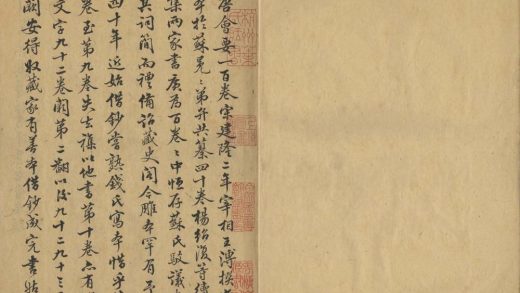 會要一百卷宋建隆二年宰相王溥撰
本於蘇冕〻弟弁共纂四十卷楊紹復等續
集兩家書廣為百卷〻中恒存蘇氏駁議
其詞簡而禮備詔藏史閣今雕本罕有予
四十年近始借鈔常熟錢氏寫本惜乎第
卷至第九卷失去雜以他書第十卷亦有
文字九十二卷闕第二翻以後九十二九十三
闕安得收藏家有善本借鈔成完書姑